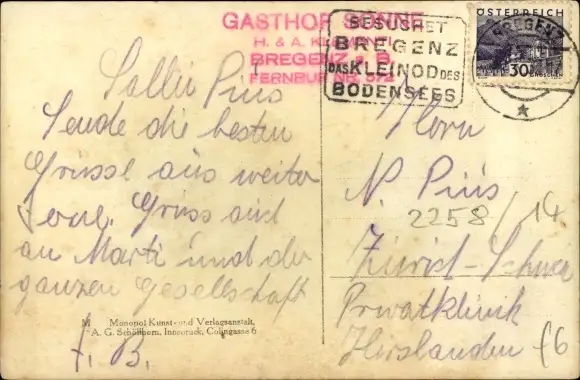 GASTHOF SONNE
H. & A.
BREGENZ a. B.
FERNRUF NR. 572
BESUCHET
BREGENZ
DAS KLEINOD DES
BODENSEES
ÖSTERREICH
30
BREGENZ
Sende die besten
Grüsse aus weiter
Ferne. Gruss auch
an Marti und der
ganzen Gesellschaft
A. B.
M Monopol Kunst- und Verlagsanstalt,
A. G. Schöllhorn, Innsbruck, Colingasse 6
Herrn
N. Pius
2258/14
Zürich-Schweiz
Privatklinik
Hirslanden
f6